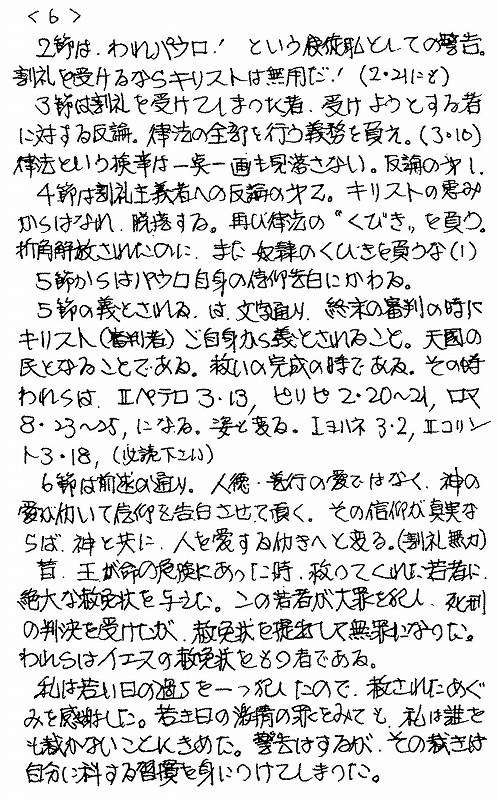 <6>
2節は、われパウロ！という使徒職としての警告。
割礼を受けるならキリストは無用だ！(2・21にも)
3節は割礼を受けてしまった者、受けようとする者
に対する反論。律法の全部を行う義務を負え。(3・10)
律法という検事は一点一画も見落さない。反論の才1.
4節は割礼主義者への反論の才2。キリストの恵み
からはなれ、脱落する。再び律法の〝くびき〟を負う。
折角解放されたのに、また奴隷のくびきを負うな(1)
5節からはパウロ自身の信仰告白にかわる。
5節の義とされる、は、文字通り、終末の審判の時に
キリスト(審判者)ご自身から義とされること。天国の
民となることである。救いの完成の時である。その時
われらは、IIペテロ3・13, ピリピ2・20～21, ロマ
8・23～25, になる。姿と変る。Iヨハネ3・2, IIコリン
ト3・18, (必読下さい)
6節は前述の通り。人徳・善行の愛ではなく、神の
愛が働いて信仰を告白させて頂く。その信仰が真実な
らば、神と共に、人を愛する働きへと変る。(割礼無力)
昔、王が命の危険にあった時、救ってくれた若者に、
絶大な赦免状を与えた。この若者が大罪を犯し、死刑
の判決を受けたが、赦免状を提出して無罪になった。
われらはイエスの赦免状をもつ者である。
私は若い日の過ちを一つ犯したので、赦されためぐ
みを感謝した。若き日の激情の罪をみても、私は誰を
も裁かないことにきめた。警告はするが、その裁きは
自分に科する習慣を身につけてしまった。